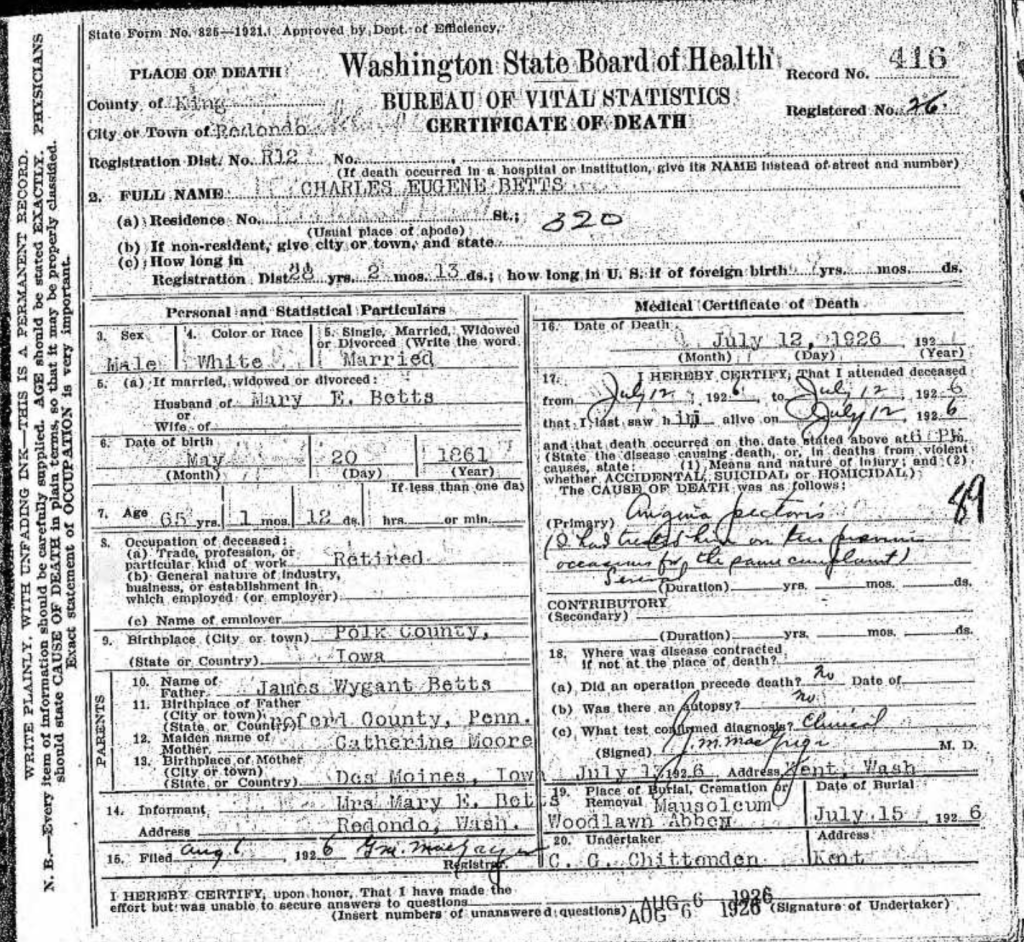 State Form No. 825—1921. Approved by Dept. of Efficiency.
PLACE OF DEATH
Washington State Board of Health
BUREAU OF VITAL STATISTICS
CERTIFICATE OF DEATH
Record No. 416
Registered No. 26.
County of King
City or Town of Redondo
Registration Dist. No. R12 No.
(If death occurred in a hospital or institution, give its NAME instead of street and number)
2. FULL NAME CHARLES EUGENE BETTS
(a) Residence No. St.; 320
(Usual place of abode)
(b) If non-resident, give city or town, and state
(c) How long in
Registration Dist. yrs. 2 mos. 13 ds.; how long in U. S. if of foreign birth? yrs. mos. ds.
Personal and Statistical Particulars
3. Sex
Male
4. Color or Race
White
5. Single, Married, Widowed
or Divorced (Write the word.
Married
5. (a) If married, widowed or divorced:
Husband of Mary E. Betts
or
Wife of
6. Date of birth
May 20 1861
(Month) (Day) (Year)
If less than one day
7. Age 65 yrs. 1 mos. 12 ds. hrs. or min.
8. Occupation of deceased:
(a) Trade, profession, or
particular kind of work Retired
(b) General nature of industry,
business, or establishment in
which employed (or employer)
(c) Name of employer
9. Birthplace (City or town) Polk County,
(State or Country) Iowa
PARENTS
10. Name of
Father James Wygant Betts
11. Birthplace of Father
(City or town)
(State or Country) County, Penn.
12. Maiden name of
Mother Catherine Moore
13. Birthplace of Mother
(City or town)
(State or Country) Des Moines, Iowa
14. Informant Mrs Mary E. Betts
Address Redondo, Wash.
15. Filed Aug 6, 1926
Registrar
Medical Certificate of Death
16. Date of Death
July 12, 1926 192
(Month) (Day) (Year)
17. I HEREBY CERTIFY, That I attended deceased
from July 12, 1926, to July 12, 1926
that I last saw him alive on July 12, 1926
and that death occurred on the date stated above at 6 P.M.
(State the disease causing death, or, in deaths from violent
causes, state: (1) Means and nature of Injury; and (2)
whether ACCIDENTAL, SUICIDAL or HOMICIDAL)
The CAUSE OF DEATH was as follows:
(Primary) Angina pectoris 89
(I had treated him on previous
occasions for the same complaint)
(Duration) yrs. mos. ds.
CONTRIBUTORY
(Secondary)
(Duration) yrs. mos. ds.
18. Where was disease contracted
if not at the place of death?
(a) Did an operation precede death? No Date of
(b) Was there an autopsy? No.
(c) What test confirmed diagnosis? Clinical
(Signed) M. D.
July 1926 Address Kent, Wash
19. Place of Burial, Cremation or
Removal Mausoleum
Woodlawn Abbey
Date of Burial
July 15 1926
20. Undertaker
C. C. Chittenden
Address
Kent
I HEREBY CERTIFY, upon honor, That I have made the
effort but was unable to secure answers to questions
(Insert numbers of unanswered questions) (Signature of Undertaker)
AUG 6 1926
AUG 6 1926
WRITE PLAINLY, WITH UNFADING INK—THIS IS A PERMANENT RECORD.
N. B.—Every item of information should be carefully supplied. AGE should be stated EXACTLY. PHYSICIANS
should state CAUSE OF DEATH in plain terms, so that it may be properly classified.
Exact statement of OCCUPATION is very important.